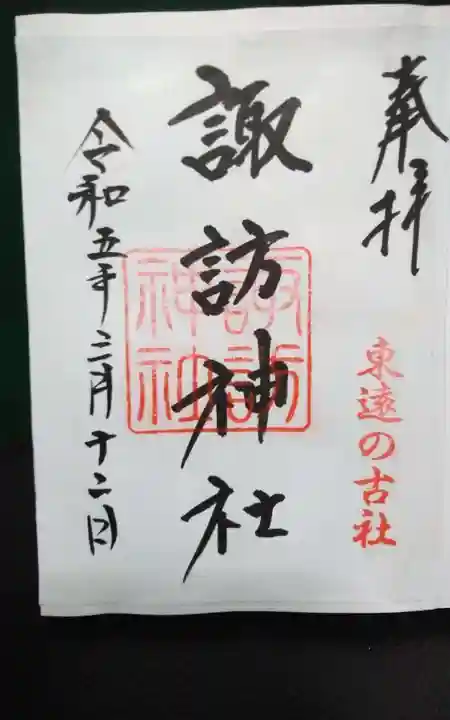 奉拝
東遠の古社
諏訪神社
諏訪
神社
令和五年三月十二日